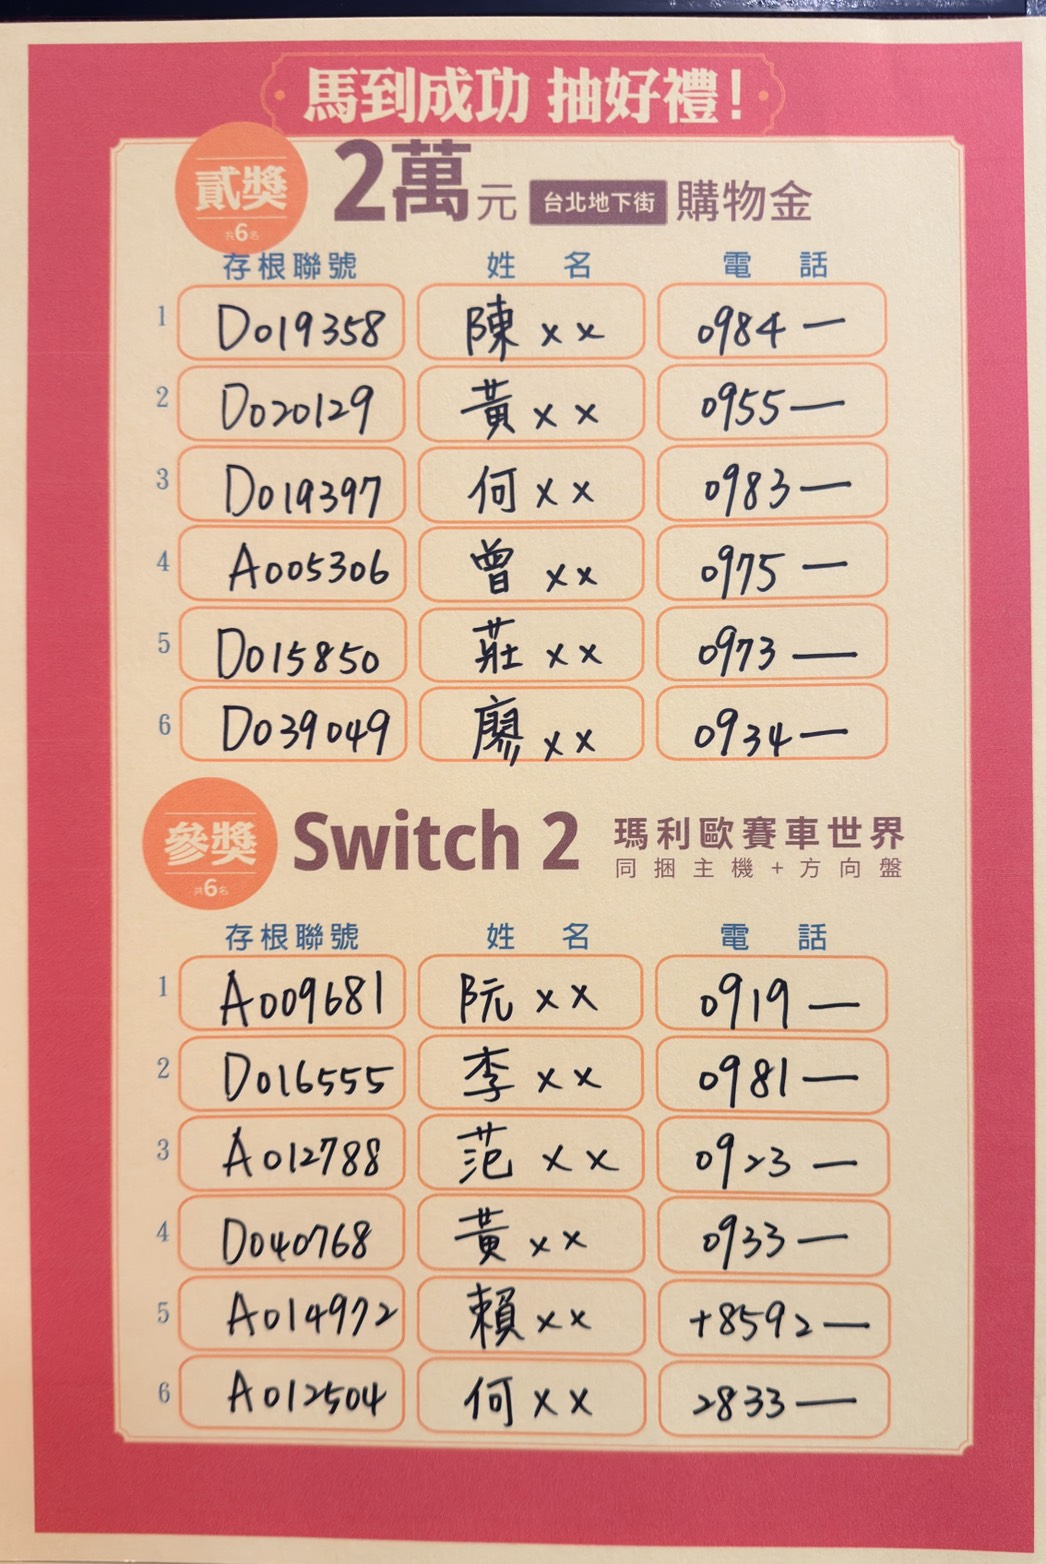 馬到成功 抽好禮！
貳獎
共6名
2萬元 台北地下街 購物金
存根聯號 姓名 電話
1 D019358 陳×× 0984—
2 D020129 黃×× 0955—
3 D019397 何×× 0983—
4 A005306 曾×× 0975—
5 D015850 莊×× 0973—
6 D039049 廖×× 0934—
參獎
共6名
Switch 2 瑪利歐賽車世界
同捆主機+方向盤
存根聯號 姓名 電話
1 A009681 阮×× 0919—
2 D016555 李×× 0981—
3 A012788 范×× 0923—
4 D040768 黃×× 0933—
5 A014972 賴×× +8592—
6 A012504 何×× 2833—